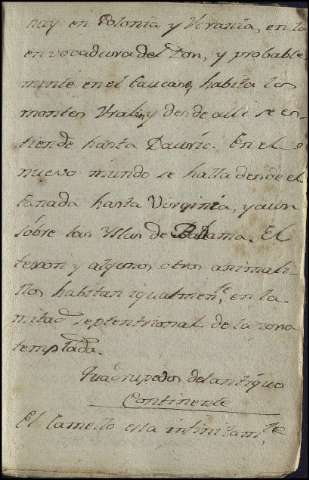 muy en Polonia y Vcrania, en la
envocadura del Don, y probable
mente en el Caucaso, habita los
montes Vrals, y desde alli se es
tiende hasta Dauria. En el
nuevo mundo se halla desde el
Canadá hasta Virginia, y aun
sóbre las Yslas de Bahama. El
texon y algunos otros animali
llos habitan igualmen.te en la
mitad septentrional de la zona
templada.
Quadrupedos del antiguo
Continente
El Camello esta infinitam.te